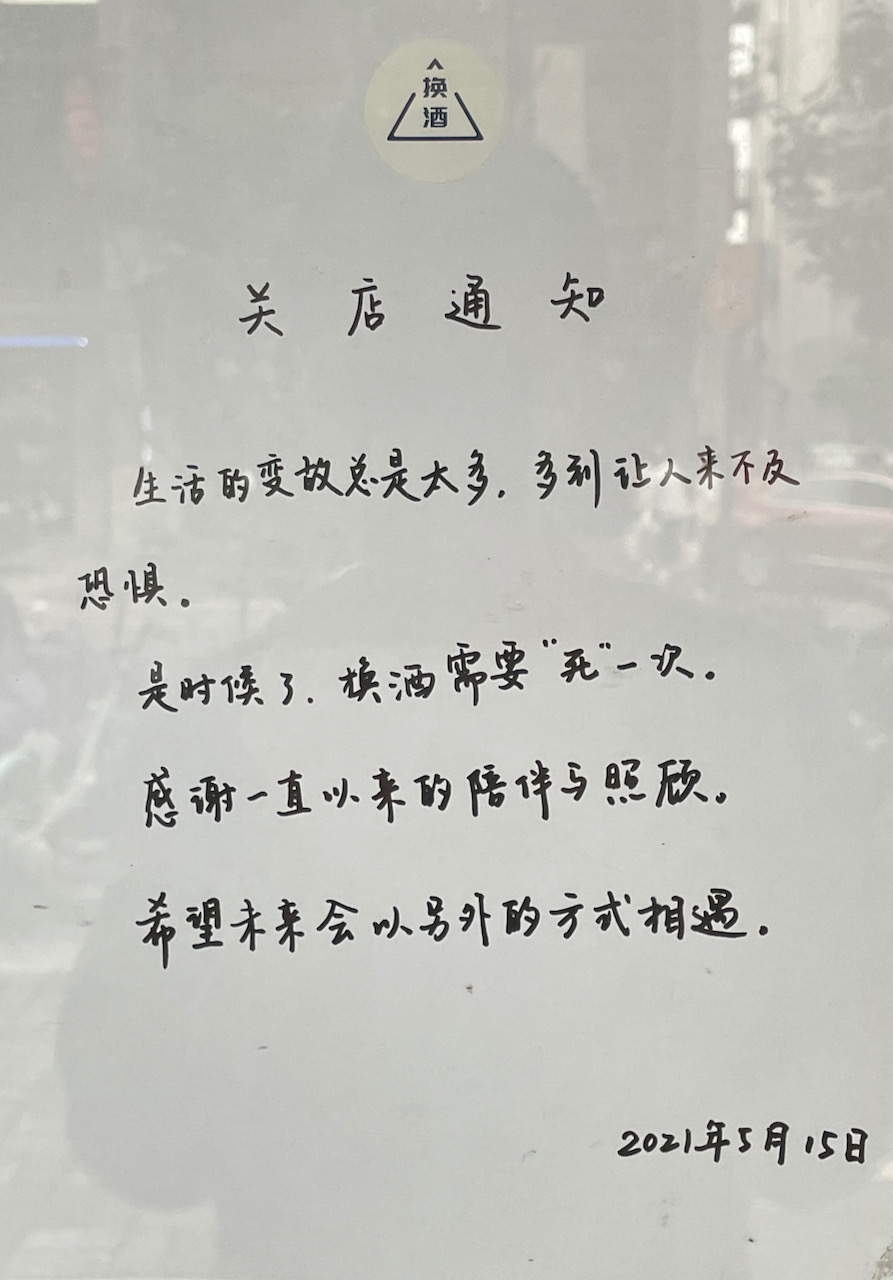 换
酒
关店通知
生活的变故总是太多,多到让人来不及
恐惧.
是时候了.换酒需要"死"一次.
感谢一直以来的陪伴与照顾。
希望未来会以另外的方式相遇.
2021年5月15日